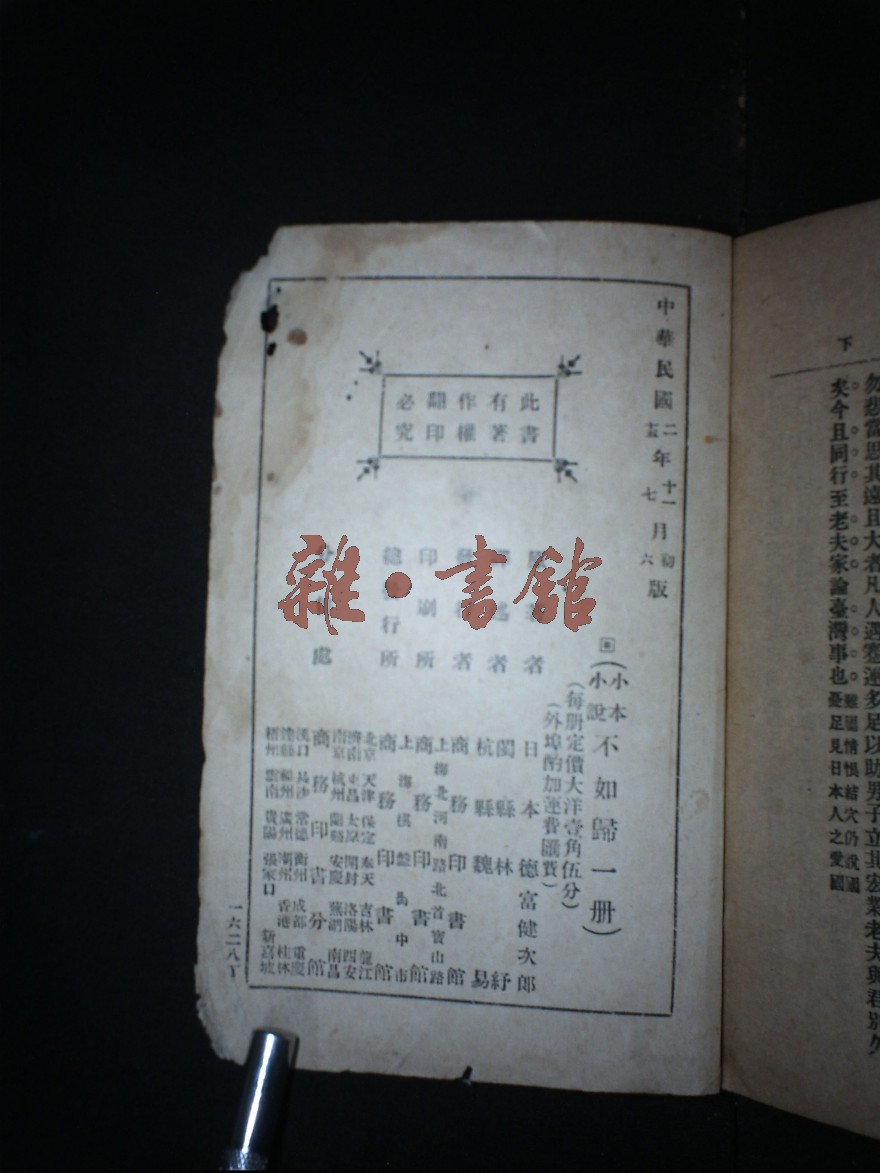 下
勿悲當思其遠且大者凡人遇蹇運多足以助男子立其宏業老夫與君別久
矣今且同行至老夫家論臺灣事也
仍說國
憂足見日本人之愛國
中華民國二年十一月初版
十五年七月六版
此書
有著
作權
翻印
必究
小本
小說
不如歸一册
(每册定價大洋壹角伍分)
(外埠酌加運費匯費)
者 日本德富健次郎
者 閩縣林紓
杭縣魏易
者 商務印書館
上海北河南路北首寶山路
印刷所 商務印書館
上海棋盤街中市
總發行所 商務印書館
北京 天津 保定 奉天 吉林 龍江
濟南 東昌 太原 開封 洛陽 西安
南京 杭州 蘭谿 安慶 蕪湖 南昌
處 商務印書分館
漢口 長沙 常德 衡州 成都 重慶
福州 廣州 潮州 香港 桂林
梧州 雲南 貴陽 張家口 新嘉坡
一六二八丁
雜·書館